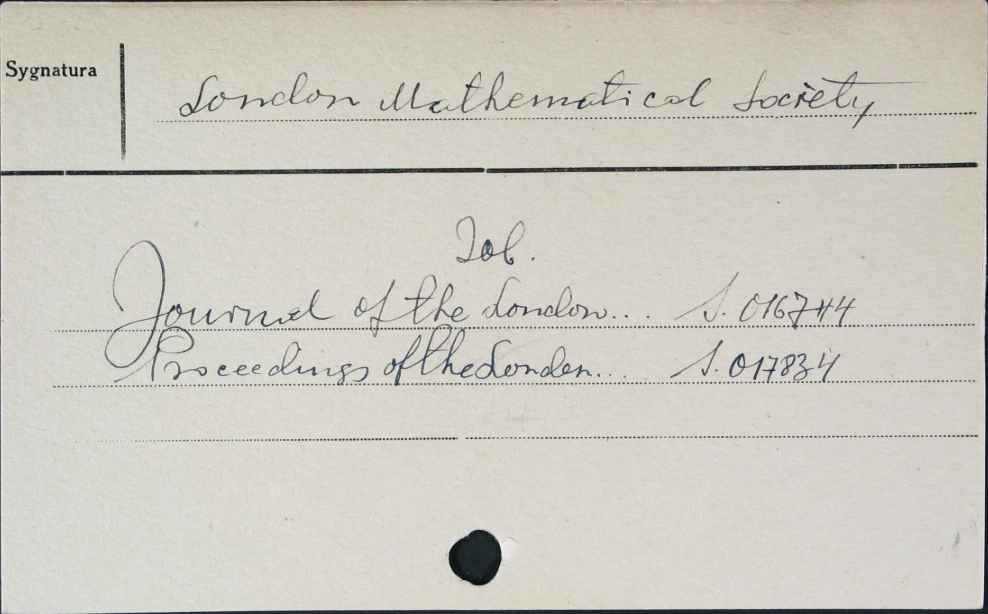 Sygnatura
London Mathematical Society
Zob.
Journal of the London... S. 016744
Proceedings of the London... S. 017834